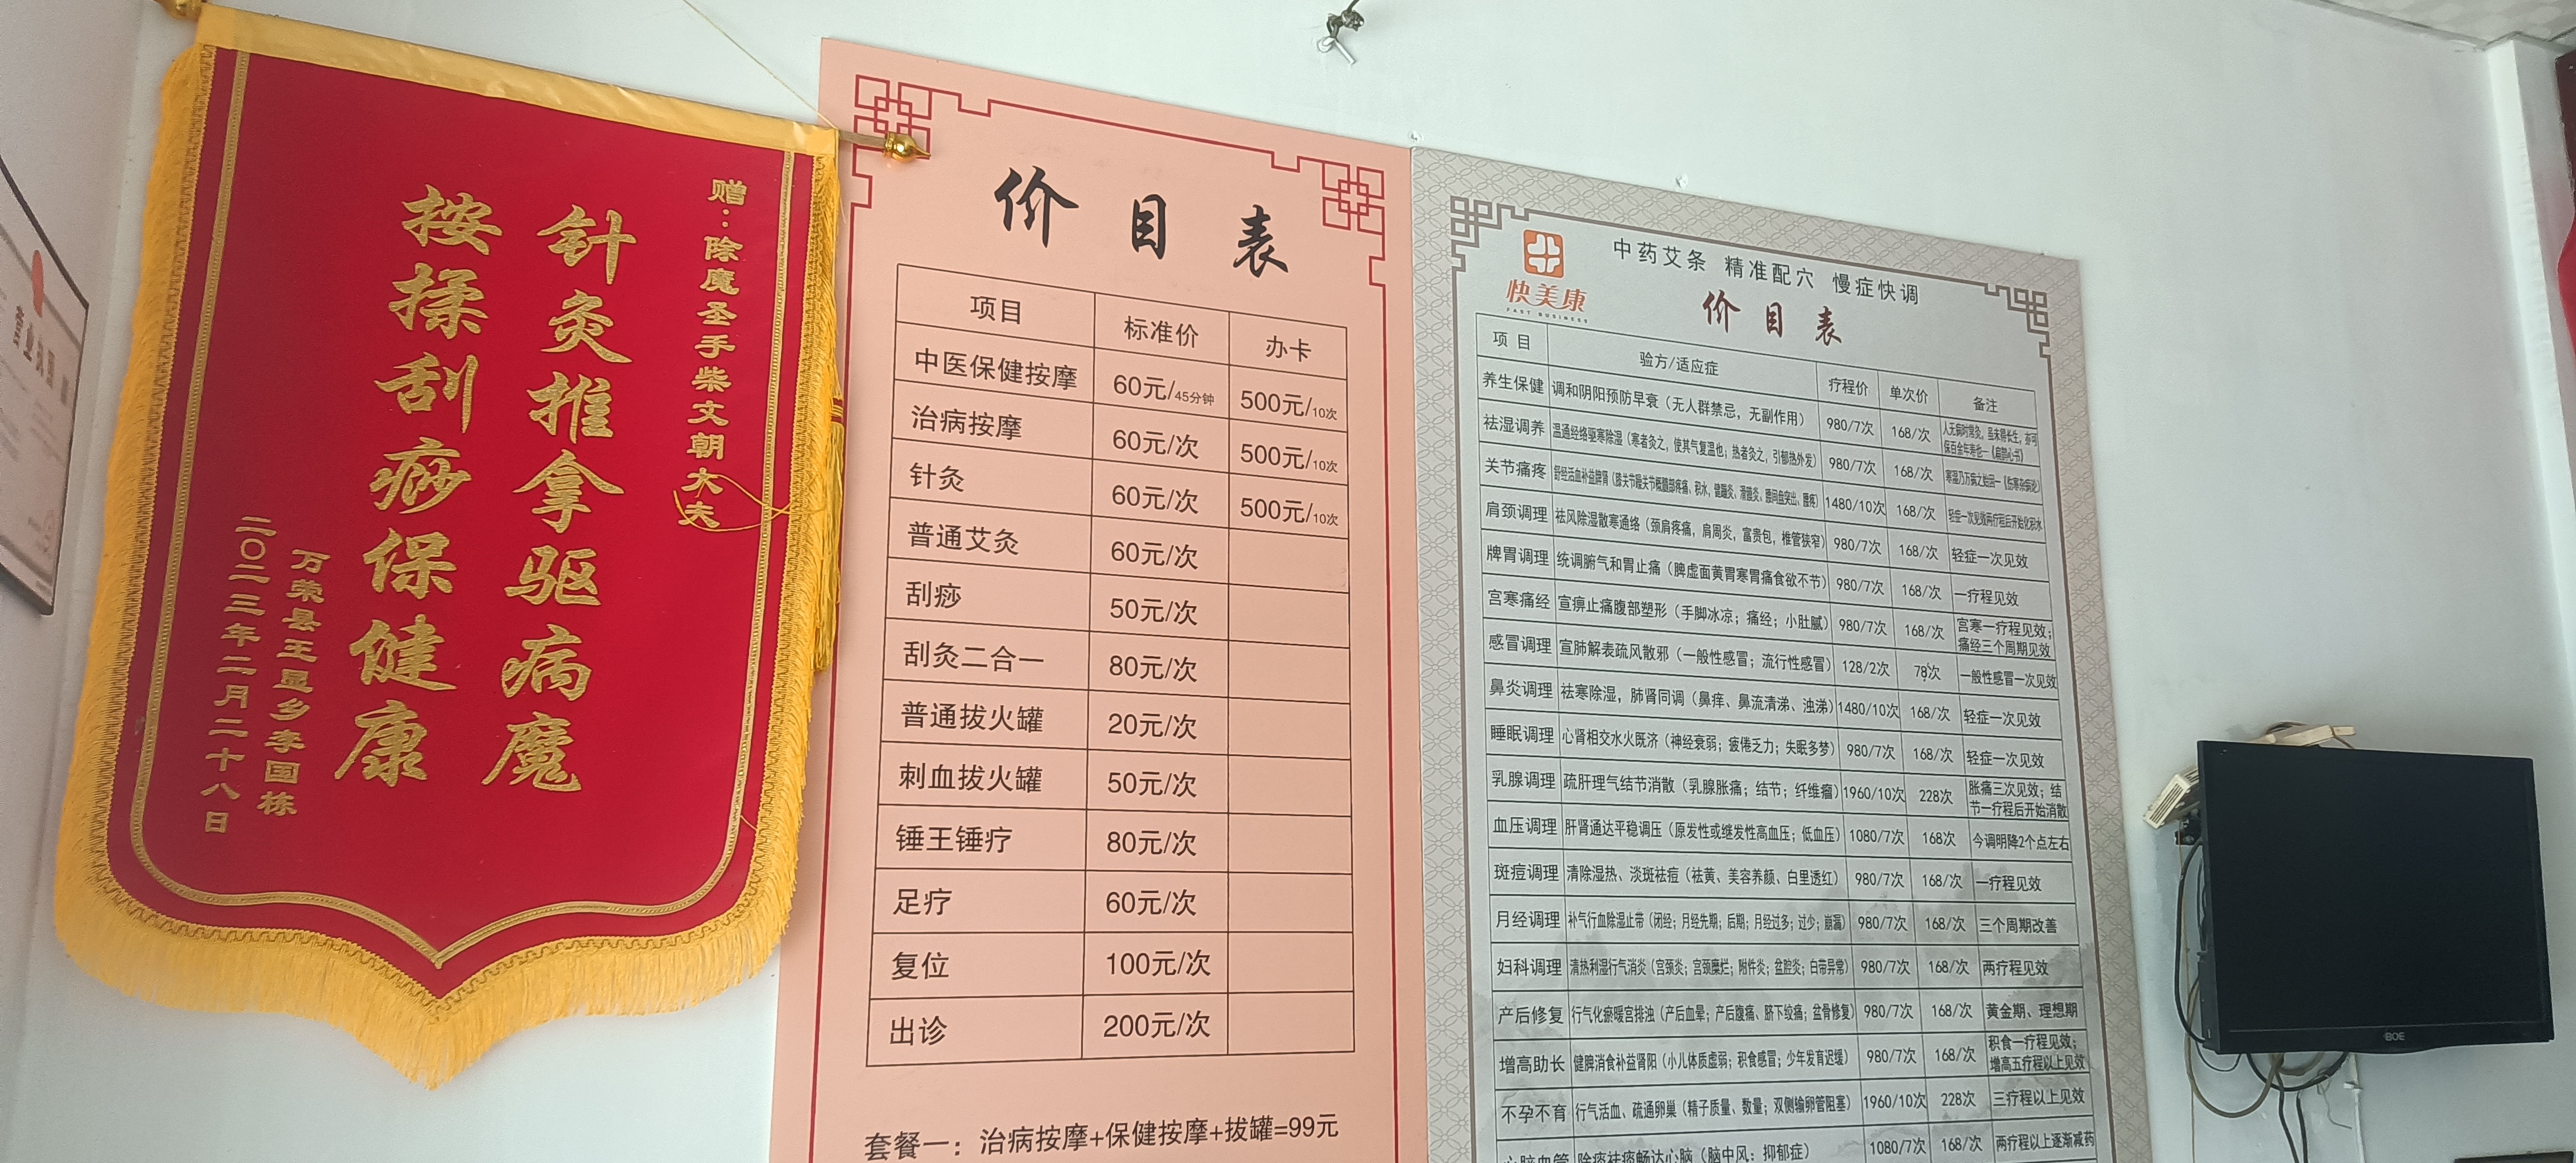 赠：除魔圣手柴文朝大夫
针灸推拿驱病魔
按揉刮痧保健康
万荣县王显乡李国栋
二〇二三年二月二十八日
价目表
项目 标准价 办卡
中医保健按摩 60元/45分钟 500元/10次
治病按摩 60元/次 500元/10次
针灸 60元/次 500元/10次
普通艾灸 60元/次
刮痧 50元/次
刮灸二合一 80元/次
普通拔火罐 20元/次
刺血拔火罐 50元/次
锤王锤疗 80元/次
足疗 60元/次
复位 100元/次
出诊 200元/次
套餐一：治病按摩+保健按摩+拔罐=99元
快美康
FAST BUSINESS
中药艾条 精准配穴 慢症快调
价目表
项目 验方/适应症 疗程价 单次价 备注
养生保健 调和阴阳预防早衰（无人群禁忌，无副作用） 980/7次 168/次 人无病时常灸，虽未得长生，亦可保百余年寿也—《扁鹊心书》
祛湿调养 温通经络驱寒除湿（寒者灸之，使其气复温也；热者灸之，引郁热外发） 980/7次 168/次 寒湿乃万病之始因—《伤寒杂病论》
关节痛疼 舒经活血补益脾肾（膝关节髋关节概髓部疼痛、积水，健鞘炎、滑膜炎、腰间盘突出、腰疼） 1480/10次 168/次 轻症一次见效两疗程后开始化积水
肩颈调理 祛风除湿散寒通络（颈肩疼痛，肩周炎，富贵包，椎管狭窄） 980/7次 168/次 轻症一次见效
牌胃调理 统调腑气和胃止痛（脾虚面黄胃寒胃痛食欲不节） 980/7次 168/次 一疗程见效
宫寒痛经 宣痹止痛腹部塑形（手脚冰凉；痛经；小肚腻） 980/7次 168/次 宫寒一疗程见效；痛经三个周期见效
感冒调理 宣肺解表疏风散邪（一般性感冒；流行性感冒） 128/2次 78次 一般性感冒一次见效
鼻炎调理 祛寒除湿，肺肾同调（鼻痒、鼻流清涕、浊涕） 1480/10次 168/次 轻症一次见效
睡眠调理 心肾相交水火既济（神经衰弱；疲倦乏力；失眠多梦） 980/7次 168/次 轻症一次见效
乳腺调理 疏肝理气结节消散（乳腺胀痛；结节；纤维瘤） 1960/10次 228次 胀痛三次见效；结节一疗程后开始消散
血压调理 肝肾通达平稳调压（原发性或继发性高血压；低血压） 1080/7次 168次 今调明降2个点左右
斑痘调理 清除湿热、淡斑祛痘（祛黄、美容养颜、白里透红） 980/7次 168/次 一疗程见效
月经调理 补气行血除湿止带（闭经；月经先期；后期；月经过多；过少；崩漏） 980/7次 168/次 三个周期改善
妇科调理 清热利湿行气消炎（宫颈炎；宫颈糜烂；附件炎；盆腔炎；白带异常） 980/7次 168/次 两疗程见效
产后修复 行气化瘀暖宫排浊（产后血晕；产后腹痛、脐下绞痛；盆骨修复） 980/7次 168/次 黄金期、理想期
增高助长 健脾消食补益肾阳（小儿体质虚弱；积食感冒；少年发育迟缓） 980/7次 168/次 积食一疗程见效；增高五疗程以上见效
不孕不育 行气活血、疏通卵巢（精子质量、数量；双侧输卵管阻塞） 1960/10次 228次 三疗程以上见效
心脑血管 除痰祛瘀畅达心脑（脑中风：抑郁症） 1080/7次 168/次 两疗程以上逐渐减药
BOE